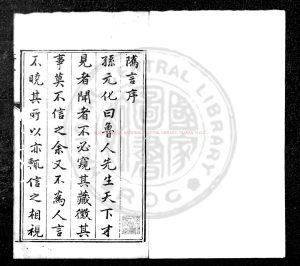 隲言序
孫元化曰魯人先生天下才
見者聞者不必窺其藏徵其
事莫不信之余又不爲人言
不曉其所以亦甄信之相視
CENTRAL LIBRARY
R.O.C.